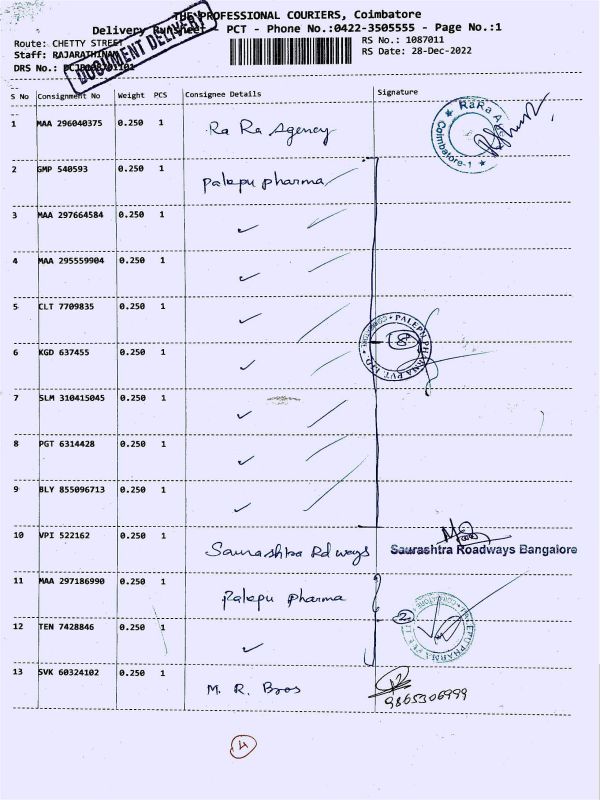 THE PROFESSIONAL COURIERS, Coimbatore
Delivery Runsheet - PCT - Phone No.:0422-3505555 - Page No.:1
Route: CHETTY STREET
RS No.: 1087011
Staff: RAJARATHINAM
RS Date: 28-Dec-2022
DRS No.:
DOCUMENT DELIVERED
S No Consignment No Weight PCS Consignee Details Signature
1 MAA 296040375 0.250 1 Ra Ra Agency
RaRa
Coimbatore-1
2 GMP 540593 0.250 1 Palepu pharma
3 MAA 297664584 0.250 1 ✓
4 MAA 295559904 0.250 1 ✓
5 CLT 7709835 0.250 1 ✓
PALEPU PHARMA PVT LTD
COIMBATORE
8
6 KGD 637455 0.250 1 ✓
7 SLM 310415045 0.250 1 ✓
8 PGT 6314428 0.250 1 ✓
9 BLY 855096713 0.250 1 ✓
10 VPI 522162 0.250 1 Saurashtra Rd ways
Saurashtra Roadways Bangalore
11 MAA 297186990 0.250 1 Palepu pharma
2
12 TEN 7428846 0.250 1 ✓
13 SVK 60324102 0.250 1 M. R. Bros
9865306999
4